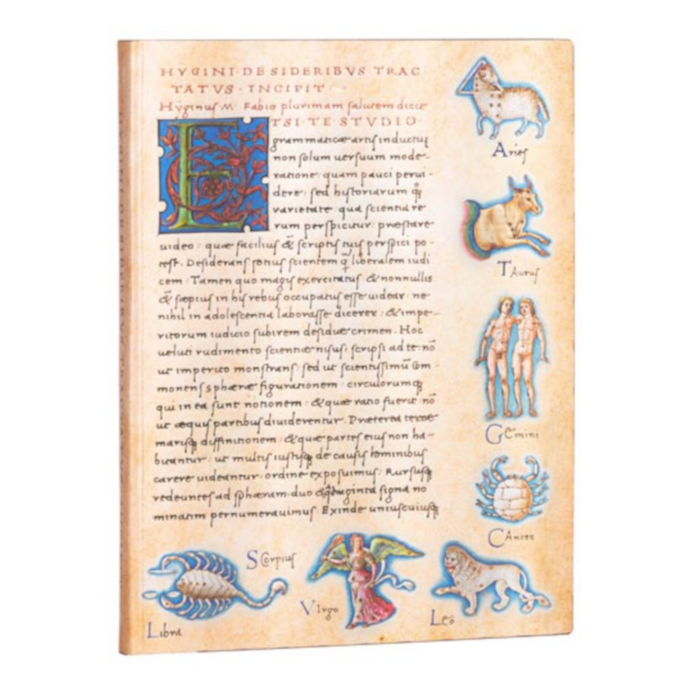 HYGINI·DESIDERIBVS TRAC
TATVS·INCIPIT
Hyginus M. Fabio plurimam salutem dicit
ETSI·TE STVDIO·
grammaticæ artis inductus
non solum uersuum mode-
ratione: quam pauci perui-
dere: sed historiarum q
uarietate qua scientia re
rum perspicitur: præstare
uideo: quæ facilius & scriptis tuis perspici po-
test. Desiderans potius scientem q liberalem iudi
cem: Tamen quo magis exercitatus & nonnullis
& sæpius in his rebus occupatus esse uidear: ne
nihil in adolescentia laborasse dicerer: & impe-
ritorum iudicio subirem desidiæ crimen. Hoc
ueluti rudimento scientiæ nisus: scripsi ad te nō
ut imperito monstrans: sed ut scientissimū com-
monens sphæræ figurationem: circulorumq
qui in ea sunt notionem: & quæ ratio fuerit nō
ut æquis partibus diuiderentur. Præterea terræ
marisq diffinitionem: & quæ partes eius non ha-
bitantur: ut multis iustisq de causis hominibus
carere uideantur: ordine exposuimus: Rursusq
redeuntes ad sphæram duo & signa no
minatim pernumerauimus. Exinde uniuscuiusq
Aries
TAurus
GEmini
CAncer
LEo
VIrgo
SCorpius
Libra